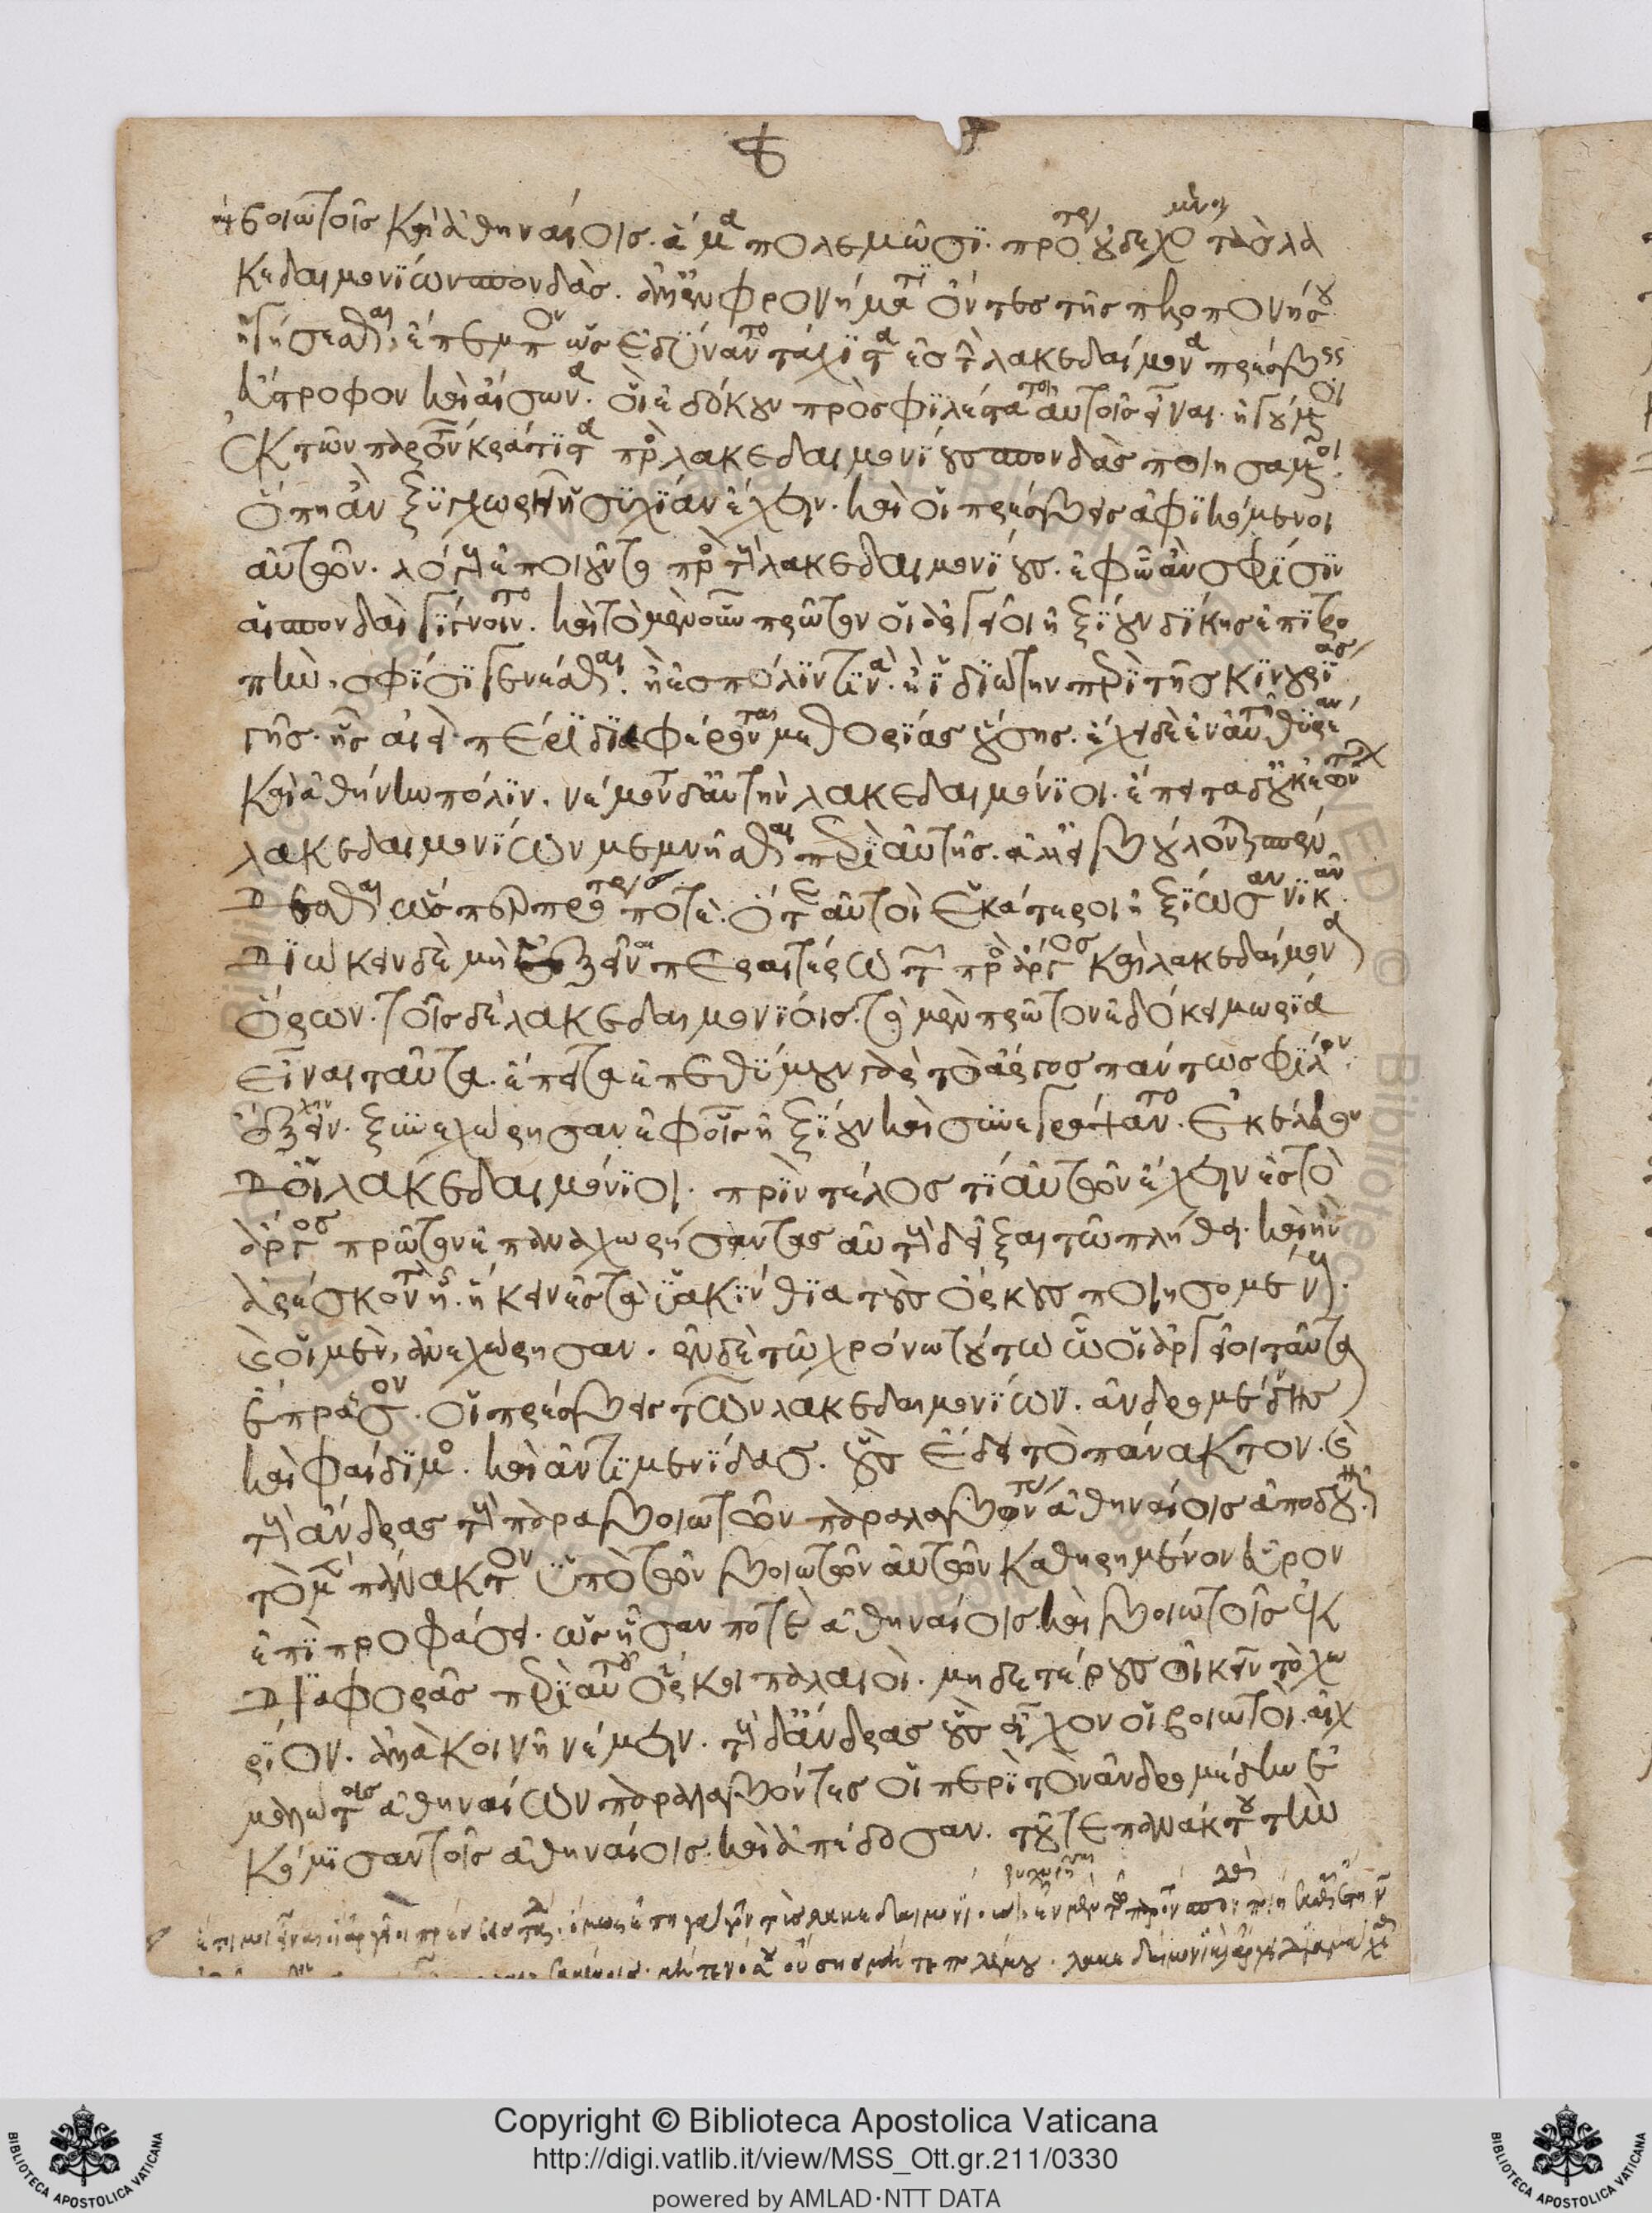 βοιωτοῖς καὶ ἀθηναίοις ἅμα πολεμῶσι· πρότερον οὐ δεχόμενοι τὰς λα
κεδαιμονίων σπονδὰς. ἀλλ' ἐν φρονήματι ὄντες τῆς πελοπονήσου
ἡγήσεσθαι, ἔπεμπον ὡς ἐδύναντο τάχιστα ἐς τὴν λακεδαίμονα πρέσβεις
εὔστροφον καὶ αἴσωνα. οἳ ἐδόκουν προσφιλέστατοι αὐτοῖς εἶναι. ἡγούμενοι
ἐκ τῶν παρόντων κράτιστα πρὸς λακεδαιμονίους σπονδὰς ποιησάμενοι.
ὅπη ἂν ξυγχωρῆ ἡσυχίαν ἔχειν. καὶ οἱ πρέσβεις ἀφικόμενοι
αὐτῶν. λόγους ἐποιοῦντο πρὸς τοὺς λακεδαιμονίους. ἐφ' ὧ ἂν σφίσιν
αἱ σπονδαὶ γίγνοιντο. καὶ τὸ μὲν οὖν πρῶτον οἱ ἀργεῖοι ἠξίουν δίκης ἐπιτρο
πὴν. σφίσι γενέσθαι. ἢ ἐς πόλιν τινὰ. ἢ ἰδιώτην περὶ τῆς κινουρίας
γῆς. ἧς αἰεὶ πέρι διαφέρονται μεθορίας οὔσης. ἔχει δὲ ἐν αὐτῆ θυρέαν
καὶ ἀθήνην πόλιν. νέμονται δ' αὐτὴν λακεδαιμόνιοι. ἔπειτα δ' οὐκ ἐώντων
λακεδαιμονίων μεμνῆσθαι περὶ αὐτῆς. ἀλλ' εἰ βούλονται σπέν
δεσθαι ὥσπερ πρότερον ποτὲ. ὅτε αὐτοὶ ἑκάτεροι ἠξίωσαν νικᾶν.
διώκειν δὲ μὴ ἐξεῖναι περαιτέρω τῶν πρὸς ἄργος καὶ λακεδαίμονα
ὅρων. τοῖς δὲ λακεδαιμονίοις. τὸ μὲν πρῶτον ἐδόκει μωρία
εἶναι ταῦτα. ἔπειτα ἐπεθύμουν γὰρ τὸ ἄργος πάντως φίλιον
ἔχειν. ξυνεχώρησαν ἐφ' οἷς ἠξίουν καὶ συνεγράψαντο. ἐκέλευον
δ' οἱ λακεδαιμόνιοι. πρὶν τέλος τι αὐτῶν ἔχειν ἐς τὸ
ἄργος πρῶτον ἐπαναχωρήσαντας αὐτοὺς δεῖξαι τῶ πλήθει. καὶ ἢν
ἀρέσκοντα ἦ. ἥκειν ἐς τὰ ὑακίνθια τοὺς ὅρκους ποιησομένους.
καὶ οἱ μὲν, ἀνεχώρησαν. ἐν δὲ τῶ χρόνω τούτω ὧ οἱ ἀργεῖοι ταῦτα
ἔπρασσον. οἱ πρέσβεις τῶν λακεδαιμονίων. ἀνδρομέδης
καὶ φαίδιμος. καὶ ἀντιμενίδας. οὓς ἔδει τὸ πάνακτον. καὶ
τοὺς ἄνδρας τοὺς παρὰ βοιωτῶν παραλαβόντας ἀθηναίοις ἀποδοῦναι.
τὸ μὲν πάνακτον ὑπὸ τῶν βοιωτῶν αὐτῶν καθηρημένον εὗρον
ἐπὶ προφάσει. ὡς ἦσαν ποτὲ ἀθηναίοις. καὶ βοιωτοῖς ἐκ
διαφορᾶς περὶ αὐτοῦ ὅρκοι παλαιοὶ. μηδετέρους οἰκεῖν τὸ χω
ρίον. ἀλλὰ κοινῆ νέμειν. τοὺς δ' ἄνδρας οὓς εἶχον οἱ βοιωτοὶ. αἰχ
μαλώτους ἀθηναίων παραλαβόντες οἱ περὶ τὸν ἀνδρομέδην ἐ
κόμισαν τοῖς ἀθηναίοις. καὶ ἀπέδοσαν. τοῦ τε πανάκτου τὴν
ἕτοιμοι εἶναι οἱ ἀργεῖοι πρέσβεις τάδε. ὅμως ἐπηγάγοντο τοὺς λακεδαιμονίους ξυγχωρῆσαι ἐν μὲν τῶ παρόντι σπονδὰς
μήτε νόσου οὔσης μήτε πολέμου. λακεδαίμονι καὶ ἄργει διαμάχεσθαι
Copyright © Biblioteca Apostolica Vaticana
http://digi.vatlib.it/view/MSS_Ott.gr.211/0330
powered by AMLAD·NTT DATA
BIBLIOTECA APOSTOLICA VATICANA
BIBLIOTECA APOSTOLICA VATICANA